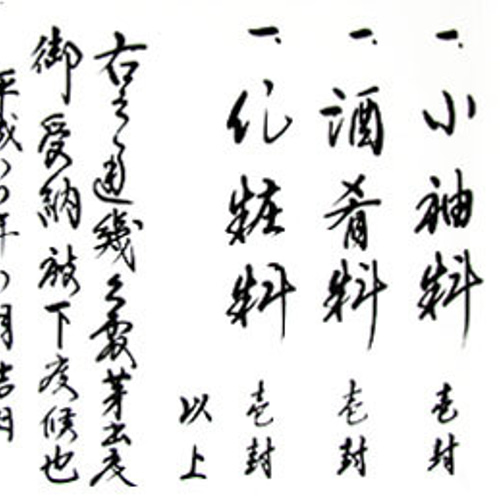 一、小袖料 壱封
一、酒肴料 壱封
一、化粧料 壱封
以上
右之通幾久敷芽出度
御受納被下度候也
平成〇〇年〇月吉日